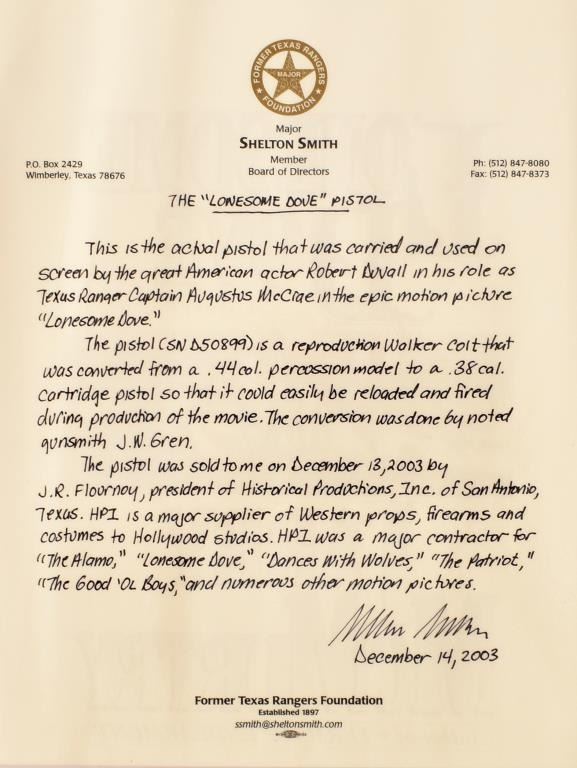 FORMER TEXAS RANGERS
MAJOR
FOUNDATION
Major
SHELTON SMITH
Member
Board of Directors
P.O. Box 2429
Wimberley, Texas 78676
Ph: (512) 847-8080
Fax: (512) 847-8373
THE "LONESOME DOVE" PISTOL
This is the actual pistol that was carried and used on
screen by the great American actor Robert Duvall in his role as
Texas Ranger Captain Augustus McCrae in the epic motion picture
"Lonesome Dove."
The pistol (SN D50899) is a reproduction Walker Colt that
was converted from a .44 cal. percussion model to a .38 cal.
cartridge pistol so that it could easily be reloaded and fired
during production of the movie. The conversion was done by noted
gunsmith J.W. Gren.
The pistol was sold to me on December 13, 2003 by
J.R. Flournoy, president of Historical Productions, Inc. of San Antonio,
Texas. HPI is a major supplier of Western props, firearms and
costumes to Hollywood studios. HPI was a major contractor for
"The Alamo," "Lonesome Dove," "Dances With Wolves," "The Patriot,"
"The Good 'OL Boys," and numerous other motion pictures.
December 14, 2003
Former Texas Rangers Foundation
Established 1897
ssmith@sheltonsmith.com